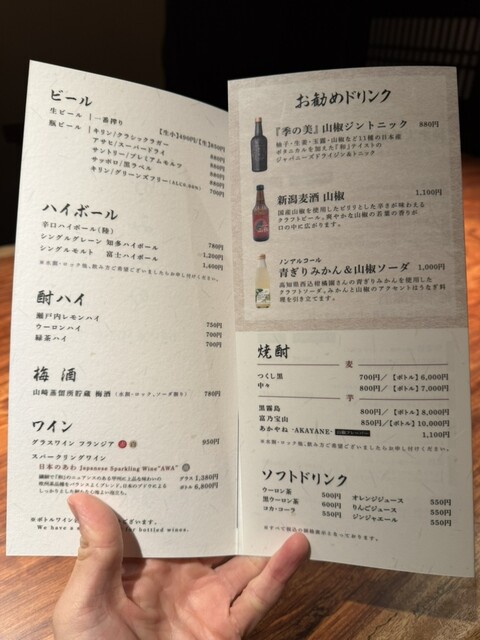 ビール
生ビール | 一番搾り 【生小】490円/【生】850円
瓶ビール | キリン/クラシックラガー 880円
アサヒ/スーパードライ 880円
サントリー/プレミアムモルツ 880円
サッポロ/黒ラベル 880円
キリン/グリーンズフリー(ALC.0.00%) 700円
ハイボール
辛口ハイボール(陸) 780円
シングルグレーン 知多ハイボール 1,200円
シングルモルト 富士ハイボール 1,600円
※水割・ロック他、飲み方ご希望ございましたらお申し付けください。
酎ハイ
瀬戸内レモンハイ 750円
ウーロンハイ 700円
緑茶ハイ 700円
梅酒
山崎蒸留所貯蔵 梅酒 (水割・ロック、ソーダ割り) 780円
ワイン
グラスワイン フランジア 赤 白 950円
スパークリングワイン
日本のあわ Japanese Sparkling Wine"AWA" グラス 1,380円
ボトル 6,800円
※ボトルワイン ございます。
We have a for bottled wines.
お勧めドリンク
『季の美』山椒ジントニック 880円
柚子・生姜・玉露・山椒など11種の日本産
ボタニカルを加えた「和」テイストの
ジャパニーズドライジン&トニック
新潟麦酒 山椒 1,100円
国産山椒を使用したピリリとした辛さが味わえる
クラフトビール。爽やかな山椒の若葉の香りが
口の中に広がります。
ノンアルコール
青ぎりみかん&山椒ソーダ 1,000円
高知県西込柑橘園さんの青ぎりみかんを使用した
クラフトソーダ。みかんと山椒のアクセントはうなぎ料
理を引き立てます。
焼酎
麦
つくし黒 700円/【ボトル】6,000円
中々 800円/【ボトル】7,000円
芋
黒霧島 800円/【ボトル】8,000円
富乃宝山 850円/【ボトル】10,000円
あかやね -AKAYANE- 山椒フレーバー 1,100円
※水割・ロック他、飲み方ご希望ございましたらお申し付けください。
ソフトドリンク
ウーロン茶 500円 オレンジジュース 550円
黒ウーロン茶 600円 りんごジュース 550円
コカ・コーラ 550円 ジンジャエール 550円
※すべて税込の価格表示となっております。